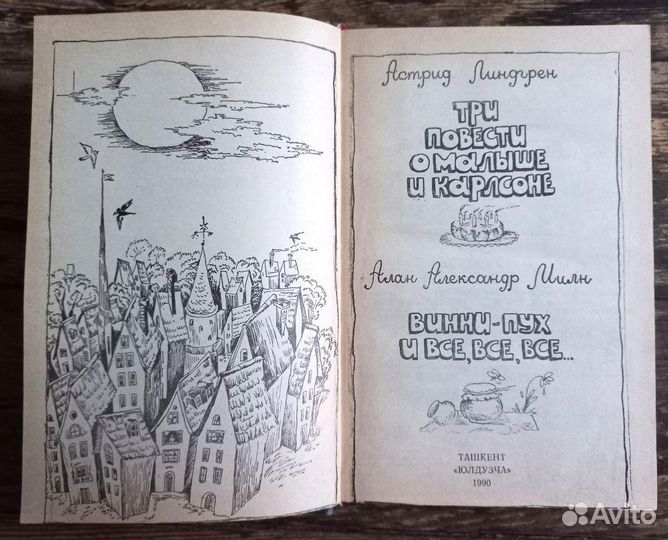 Астрид Линдгрен
ТРИ
ПОВЕСТИ
О МАЛЫШЕ
И КАРЛСОНЕ
Алан Александр Милн
ВИННИ-ПУХ
И ВСЕ, ВСЕ, ВСЕ...
ТАШКЕНТ
«ЮЛДУЗЧА»
1990
Avito